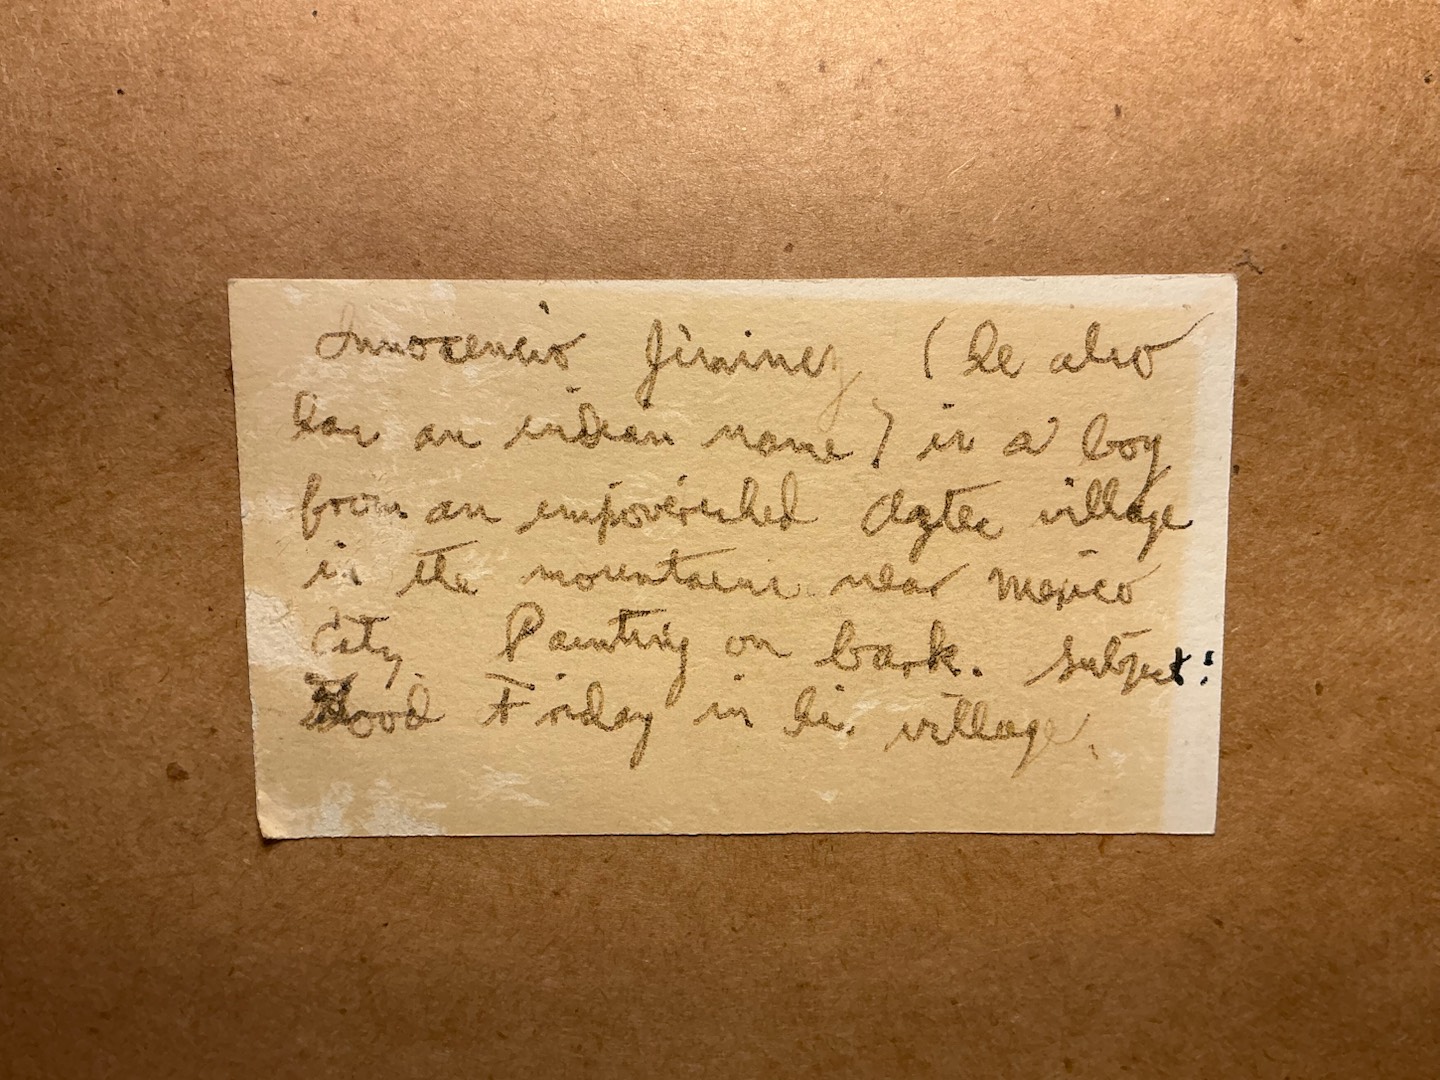 Innocencio Jiminez (he also
has an indian name) is a boy
from an empoverished Aztec village
in the mountains near Mexico
City. Painting on bark. Subject:
Good Friday in his village.